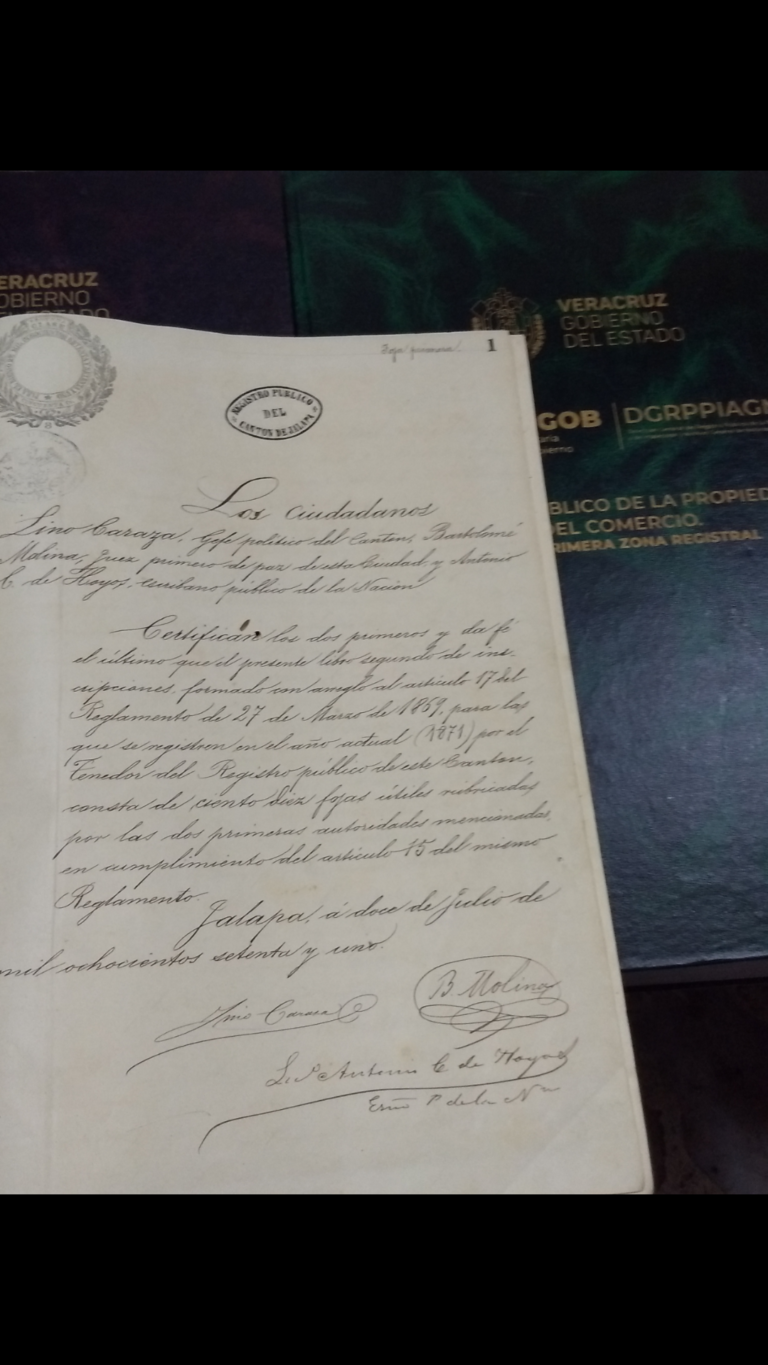 ERACRUZ
OBIERNO
DEL ESTADO
VERACRUZ
GOBIERNO
DEL ESTADO
GOB
aria
bierno
DGRPPIAGN
BLICO DE LA PROPIED
DEL COMERCIO.
RIMERA ZONA REGISTRAL
Foja primera. 1
REGISTRO PUBLICO
DEL
CANTON DE JALAPA
Los Ciudadanos
Lino Caraza, Gefe político del Canton, Bartolomé
Molina, Juez primero de paz de esta Ciudad y Antonio
C. de Hoyos, escribano público de la Nacion
Certifican los dos primeros y da fé
el último que el presente libro segundo de ins-
cripciones, formado con arreglo al artículo 17 del
Reglamento de 27 de Marzo de 1869, para las
que se registren en el año actual (1871) por el
Tenedor del Registro público de este Canton,
consta de ciento diez fojas útiles rubricadas
por las dos primeras autoridades mencionadas,
en cumplimiento del artículo 15 del mismo
Reglamento.
Jalapa, á doce de Julio de
mil ochocientos setenta y uno.
Lino Caraza
B. Molina
Antonio C. de Hoyos
Esno P. de la Non